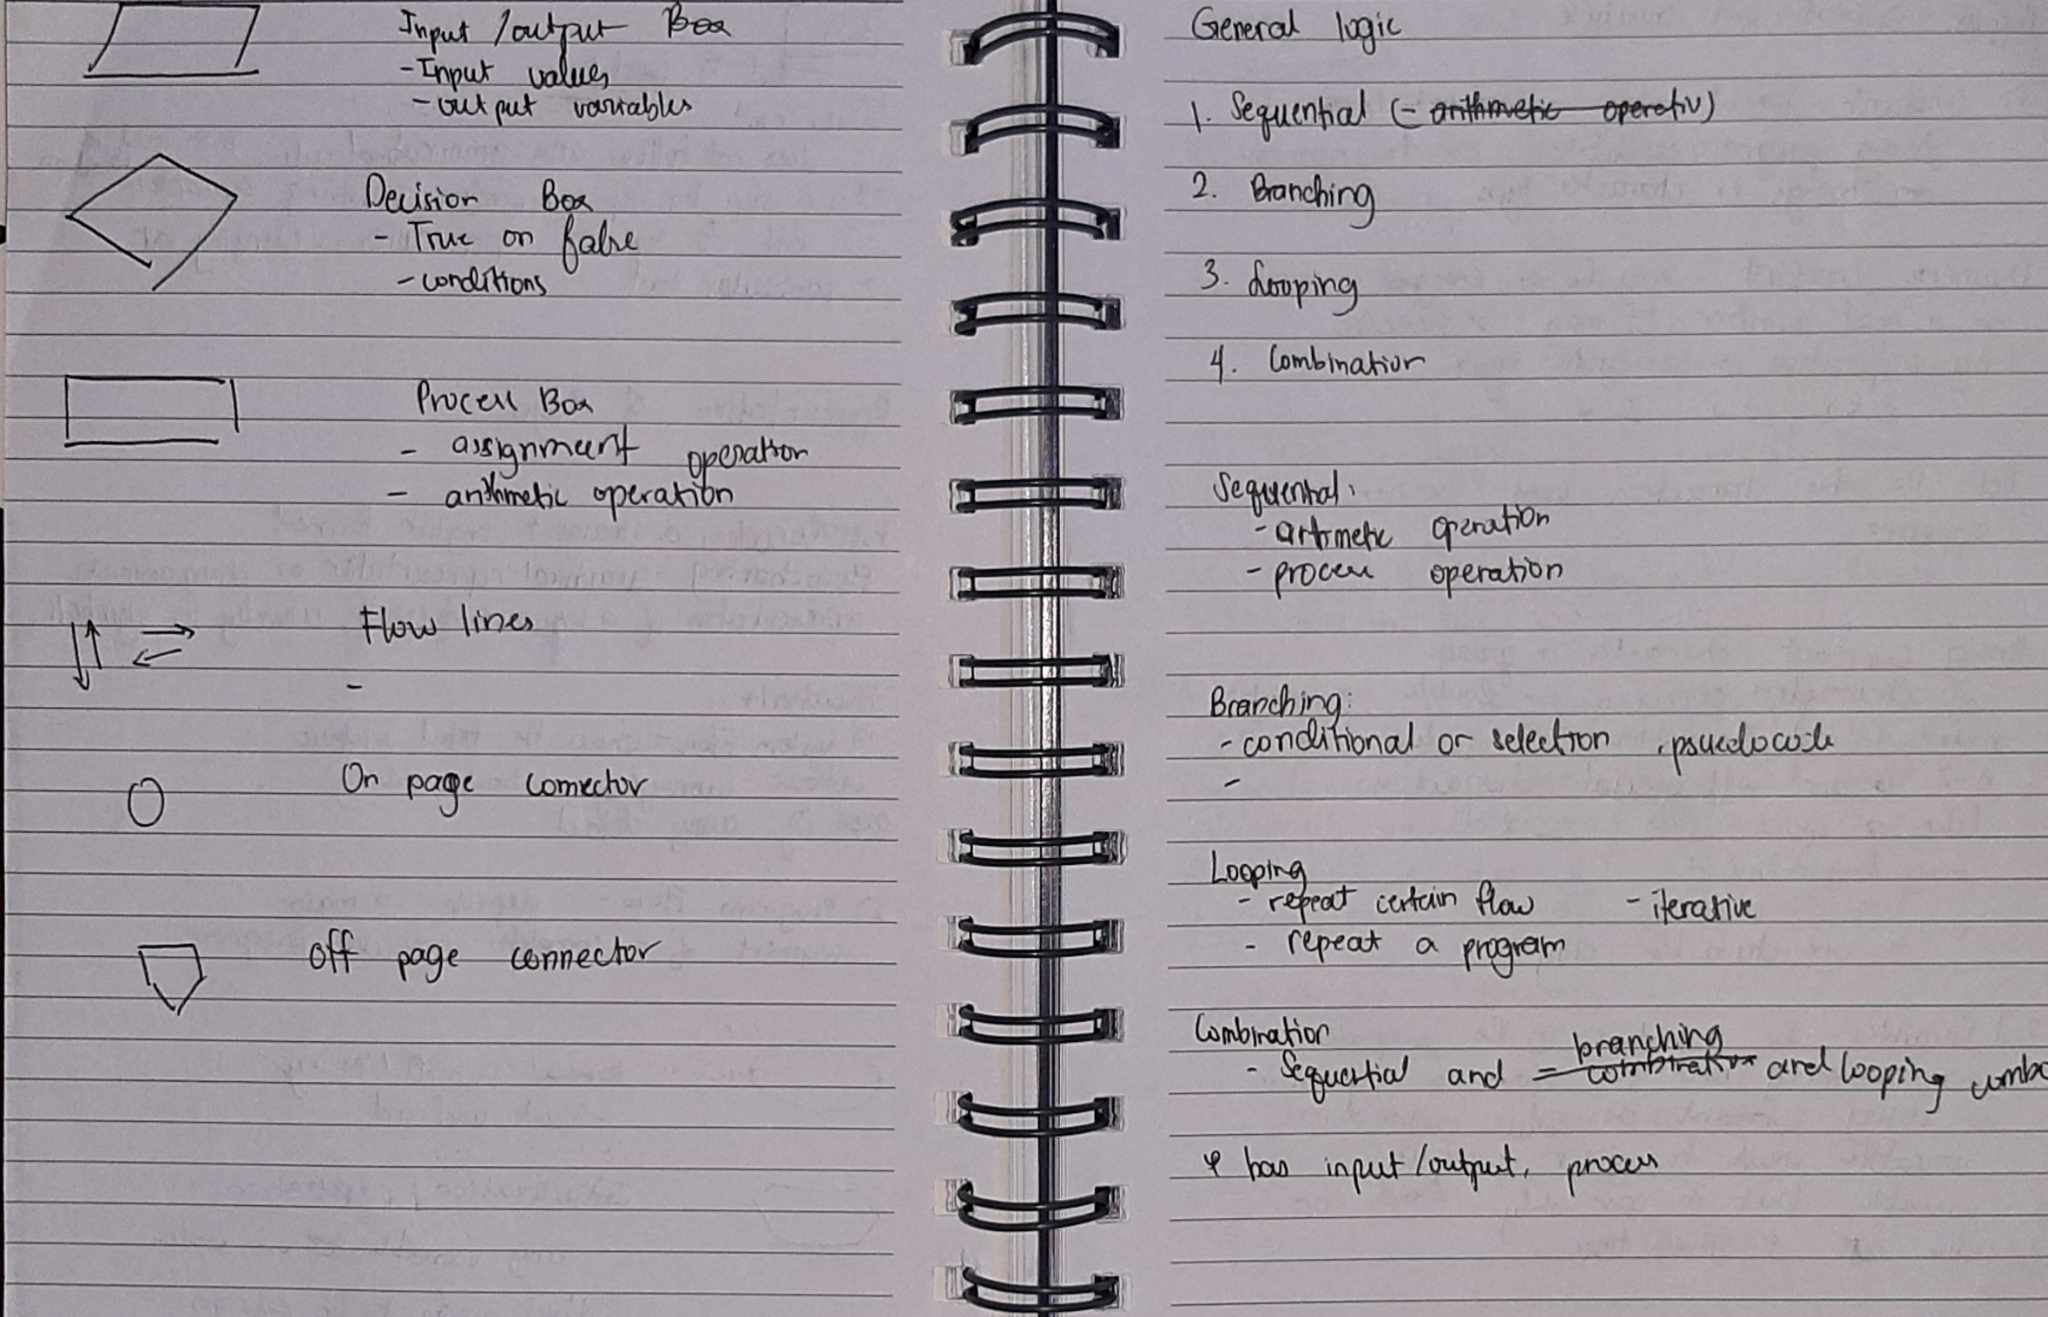 Input /output Box
- Input values
- output variables
Decision Box
- True or false
- conditions
Process Box
- assignment operation
- arithmetic operation
Flow lines
-
On page connector
Off page connector
General logic
1. Sequential (- arithmetic operativ)
2. Branching
3. Looping
4. Combination
Sequential:
- artmetic operation
- process operation
Branching:
- conditional or selection , psuedocode
-
Looping
- repeat certain flow - iterative
- repeat a program
Combination
branching
- Sequential and = combination and looping combo
has input/output, process